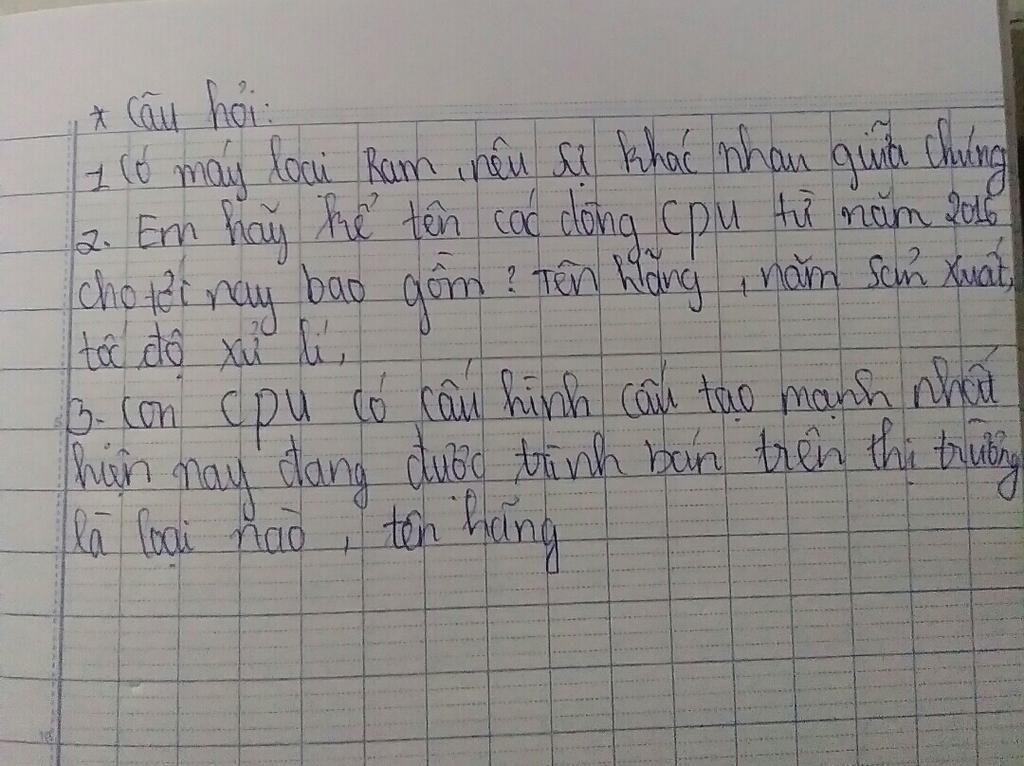 * Câu hỏi:
1 Có mấy loại Ram, nêu sự khác nhau giữa chúng
2. Em hãy kể tên các dòng cpu từ năm 2016
cho tới nay bao gồm? Tên hãng, năm sản xuất,
tốc độ xử lí,
3. Con cpu có cấu hình cấu tạo mạnh nhất
hiện nay đang được trình bán trên thị trường
là loại nào, tên hãng